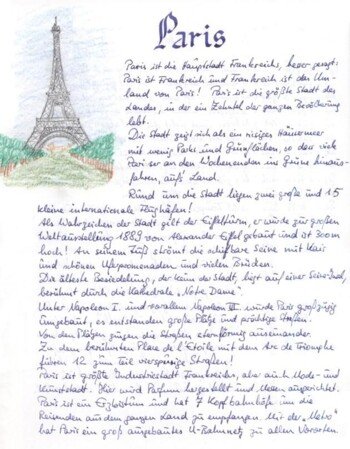 Paris
Paris ist die Hauptstadt Frankreichs, besser gesagt:
Paris ist Frankreich und Frankreich ist das Um-
land von Paris! Paris ist die größte Stadt des
Landes, in der ein Zehntel der ganzen Bevölkerung
lebt.
Die Stadt zeigt sich als ein riesiges Häusermeer
mit wenig Parks und Grünflächen, so das viele
Pariser an den Wochenenden ins Grüne hinaus-
fahren, aufs Land.
Rund um die Stadt liegen zwei große und 15
kleine internationale Flughäfen!
Als Wahrzeichen der Stadt gilt der Eiffelturm, er wurde zur großen
Weltausstellung 1889 von Alexander Eiffel gebaut und ist 300m
hoch! An seinem Fuß strömt die schiffbare Seine mit Kais
und schönen Uferpromenaden und vielen Brücken.
Die älteste Besiedelung, der Kern der Stadt, liegt auf einer Seine-Insel,
berühmt durch die Kathedrale „Notre Dame“
Unter Napoleon I. und vorallem Napoleon III. wurde Paris großzügig
umgebaut, es entstanden große Plätze und prächtige Straßen.
Von den Plätzen gingen die Straßen sternförmig auseinander.
Zu dem berühmten Place de l'Etoile mit dem Arc de Triomphe
führen 12 zum Teil vierspurige Straßen!
Paris ist größte Industriestadt Frankreichs, aber auch Mode- und
Kunststadt. Hier wird Parfum hergestellt und Messen ausgerichtet.
Paris ist ein und hat 7 Kopfbahnhöfe um die
Reisenden aus dem ganzen Land zu empfangen. Mit der „Metro“
hat Paris ein groß ausgebautes U-Bahnnetz zu allen Vororten.